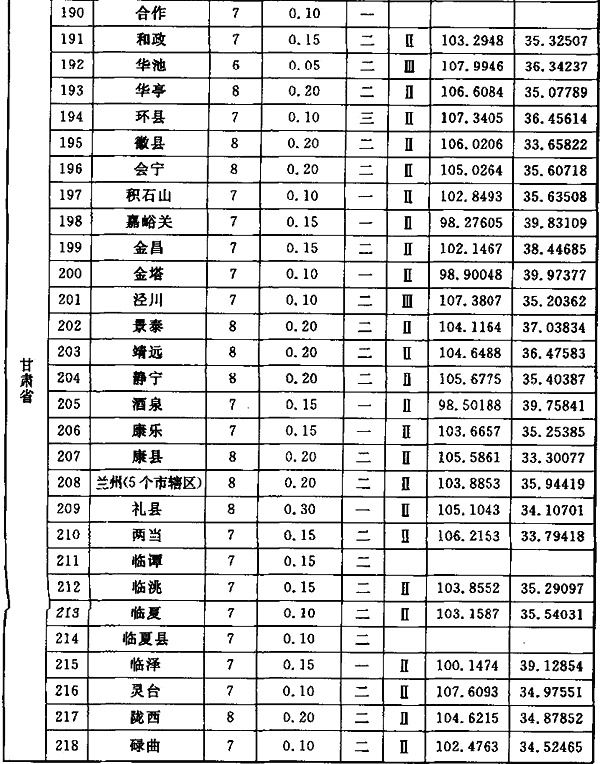 190 合作 7 0.10 一
191 和政 7 0.15 二 Ⅱ 103.2948 35.32507
192 华池 6 0.05 二 Ⅲ 107.9946 36.34237
193 华亭 8 0.20 二 Ⅱ 106.6084 35.07789
194 环县 7 0.10 三 Ⅱ 107.3405 36.45614
195 徽县 8 0.20 二 Ⅱ 106.0206 33.65822
196 会宁 8 0.20 二 Ⅱ 105.0264 35.60718
197 积石山 7 0.10 一 Ⅱ 102.8493 35.63508
198 嘉峪关 7 0.15 一 Ⅱ 98.27605 39.83109
199 金昌 7 0.15 二 Ⅱ 102.1467 38.44685
200 金塔 7 0.10 一 Ⅱ 98.90048 39.97377
201 泾川 7 0.10 二 Ⅲ 107.3807 35.20362
202 景泰 8 0.20 二 Ⅱ 104.1164 37.03834
203 靖远 8 0.20 二 Ⅱ 104.6488 36.47583
甘肃省
204 静宁 8 0.20 二 Ⅱ 105.6775 35.40387
205 酒泉 7 0.15 一 Ⅱ 98.50188 39.75841
206 康乐 7 0.15 一 Ⅱ 103.6657 35.25385
207 康县 8 0.20 二 Ⅱ 105.5861 33.30077
208 兰州(5个市辖区) 8 0.20 二 Ⅱ 103.8853 35.94419
209 礼县 8 0.30 一 Ⅱ 105.1043 34.10701
210 两当 7 0.15 二 Ⅱ 106.2153 33.79418
211 临谭 7 0.15 二
212 临洮 7 0.15 二 Ⅱ 103.8552 35.29097
213 临夏 7 0.10 二 Ⅱ 103.1587 35.54031
214 临夏县 7 0.10 二
215 临泽 7 0.15 一 Ⅱ 100.1474 39.12854
216 灵台 7 0.10 二 Ⅱ 107.6093 34.97551
217 陇西 8 0.20 二 Ⅱ 104.6215 34.87852
218 碌曲 7 0.10 二 Ⅱ 102.4763 34.52465